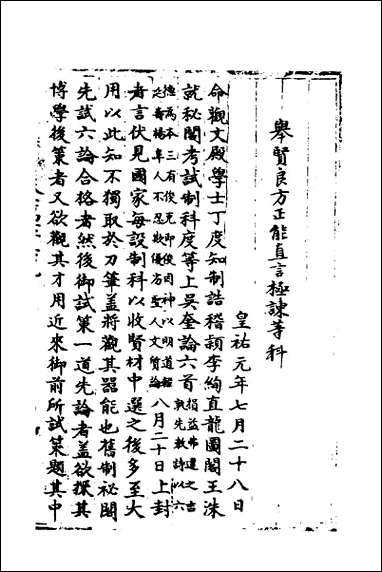 舉賢良方正能直言極諫等科
皇祐元年七月二十八日
命觀文殿學士丁度知制誥稽頴李絢直龍圖閣王洙
就秘閣考試制科度等上吳奎論六首
八月二十日上封
者言伏見國家每設制科以收賢材中選之後多至大
用以此知不獨取於刀筆盖將觀其器能也舊制祕閣
先試六論合格者然後御試策一道先論者盖欲探其
博學後策者又欲觀其才用近來御前所試策題其中